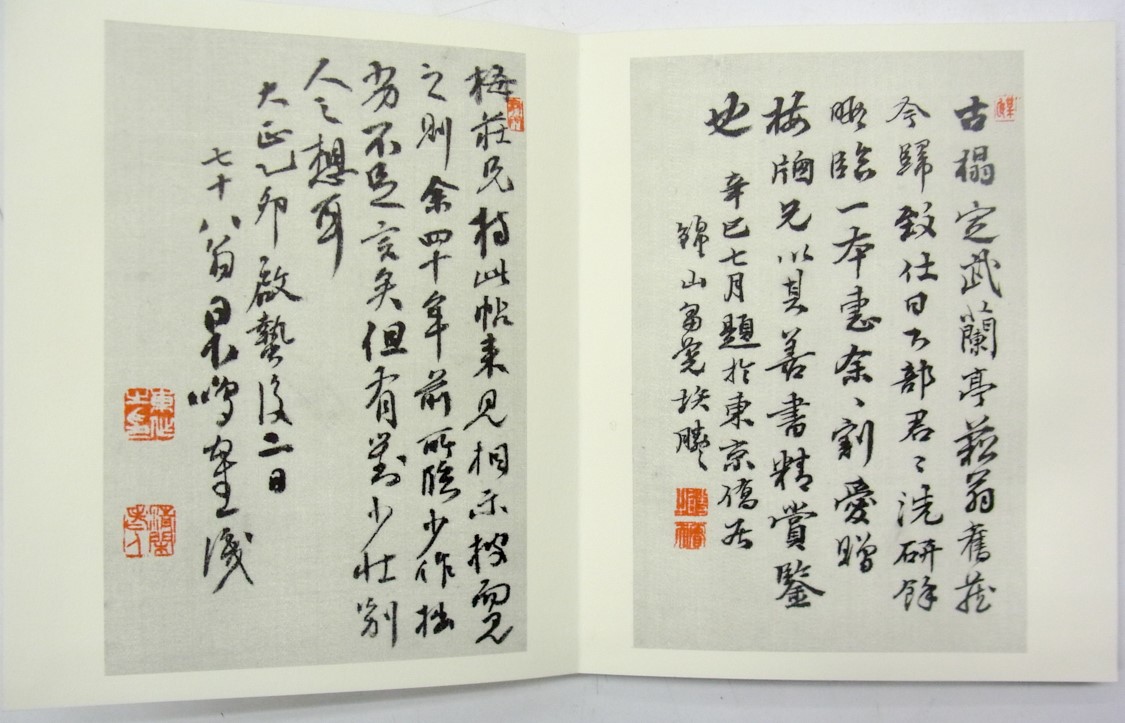 古榻定武蘭亭蘓翁舊蔵
今歸致仕日下部君〻洗研餘
暇臨一本恵余〻割愛贈
梅園兄以其善書精賞鑒
也
辛巳七月題於東京僑居
錦山
梅莊兄持此帖来見相示披而見
之則余四十年前所臨少作拙
劣不足言矣但有對少壮別
人之想耳
大正乙卯啟蟄後二日
七十八翁日下鳴鶴識